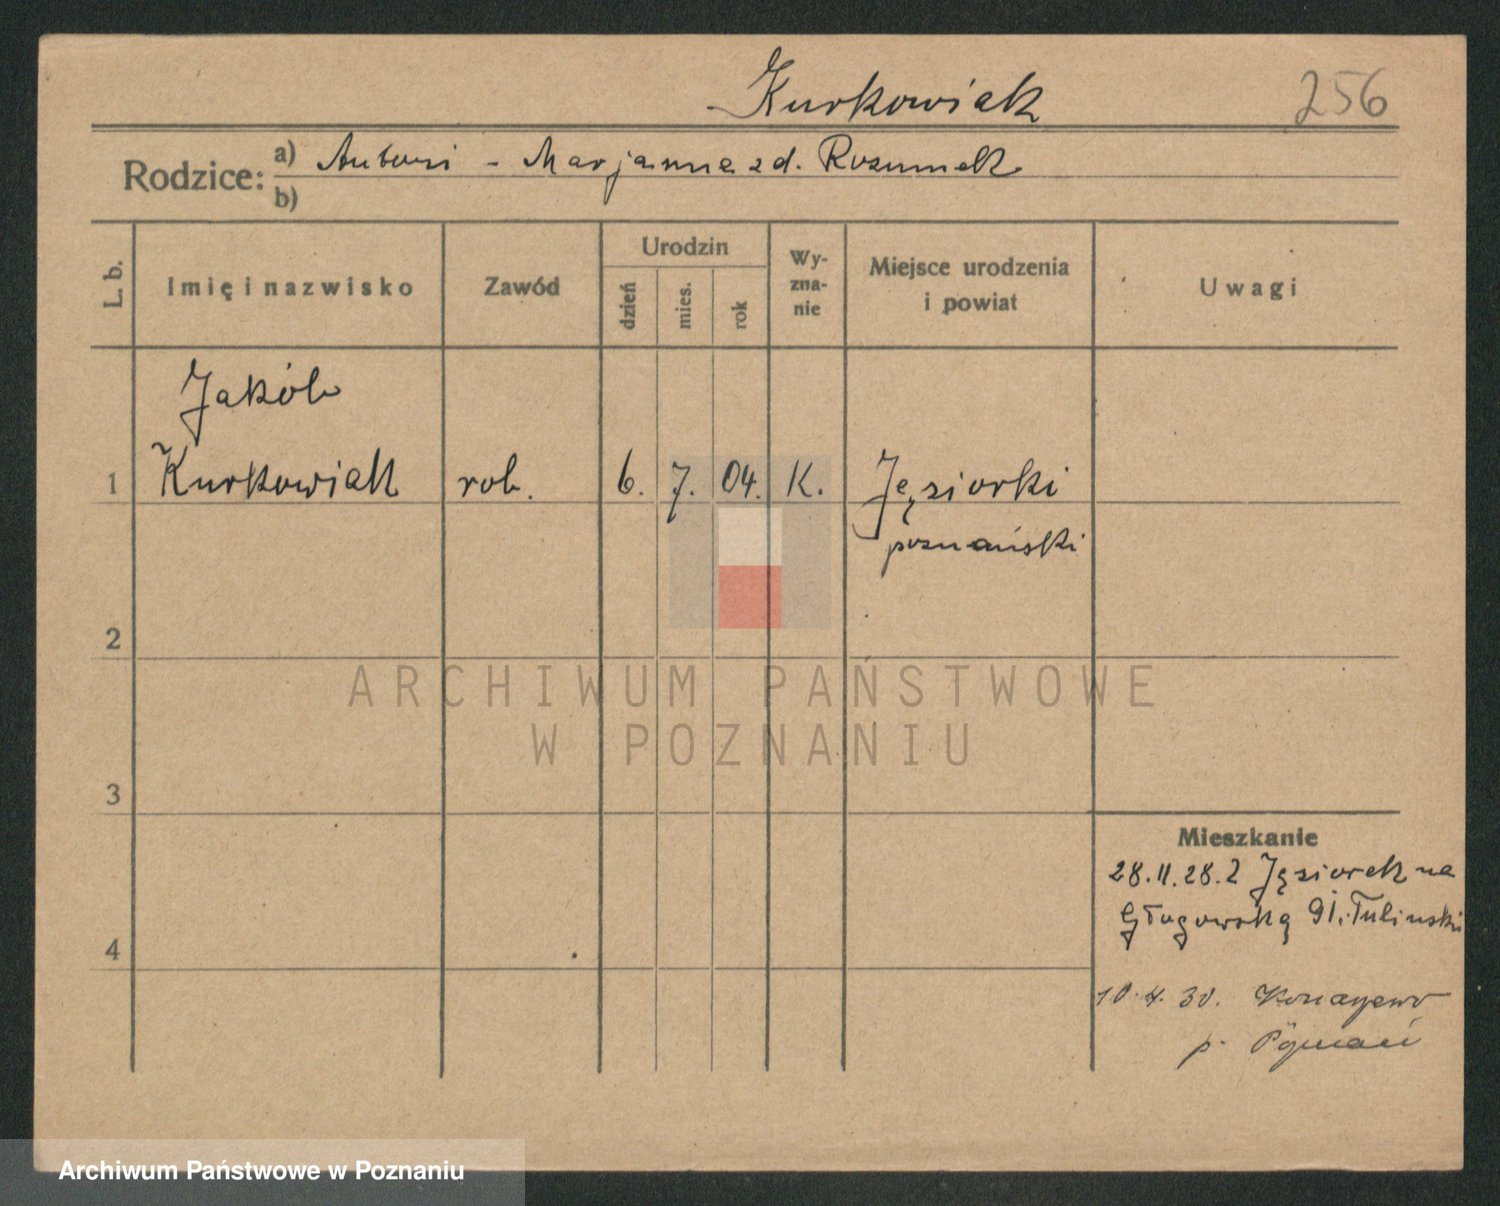 Kurkowiak 256
Rodzice: a) Antoni - Marjanna zd. Rozumek
b)
L. b. Imię i nazwisko Zawód Urodzin dzień mies. rok Wyznanie Miejsce urodzenia i powiat Uwagi
Jakób
1 Kurkowiak rob. 6. 7. 04. K. Jęziorki
poznański
2
ARCHIWUM PAŃSTWOWE
W POZNANIU
3
Mieszkanie
28.11.28. z Jęziorek na
Głogowską 91. Tuliński
4
10.4.30. Konarzewo
p. Poznań
Archiwum Państwowe w Poznaniu